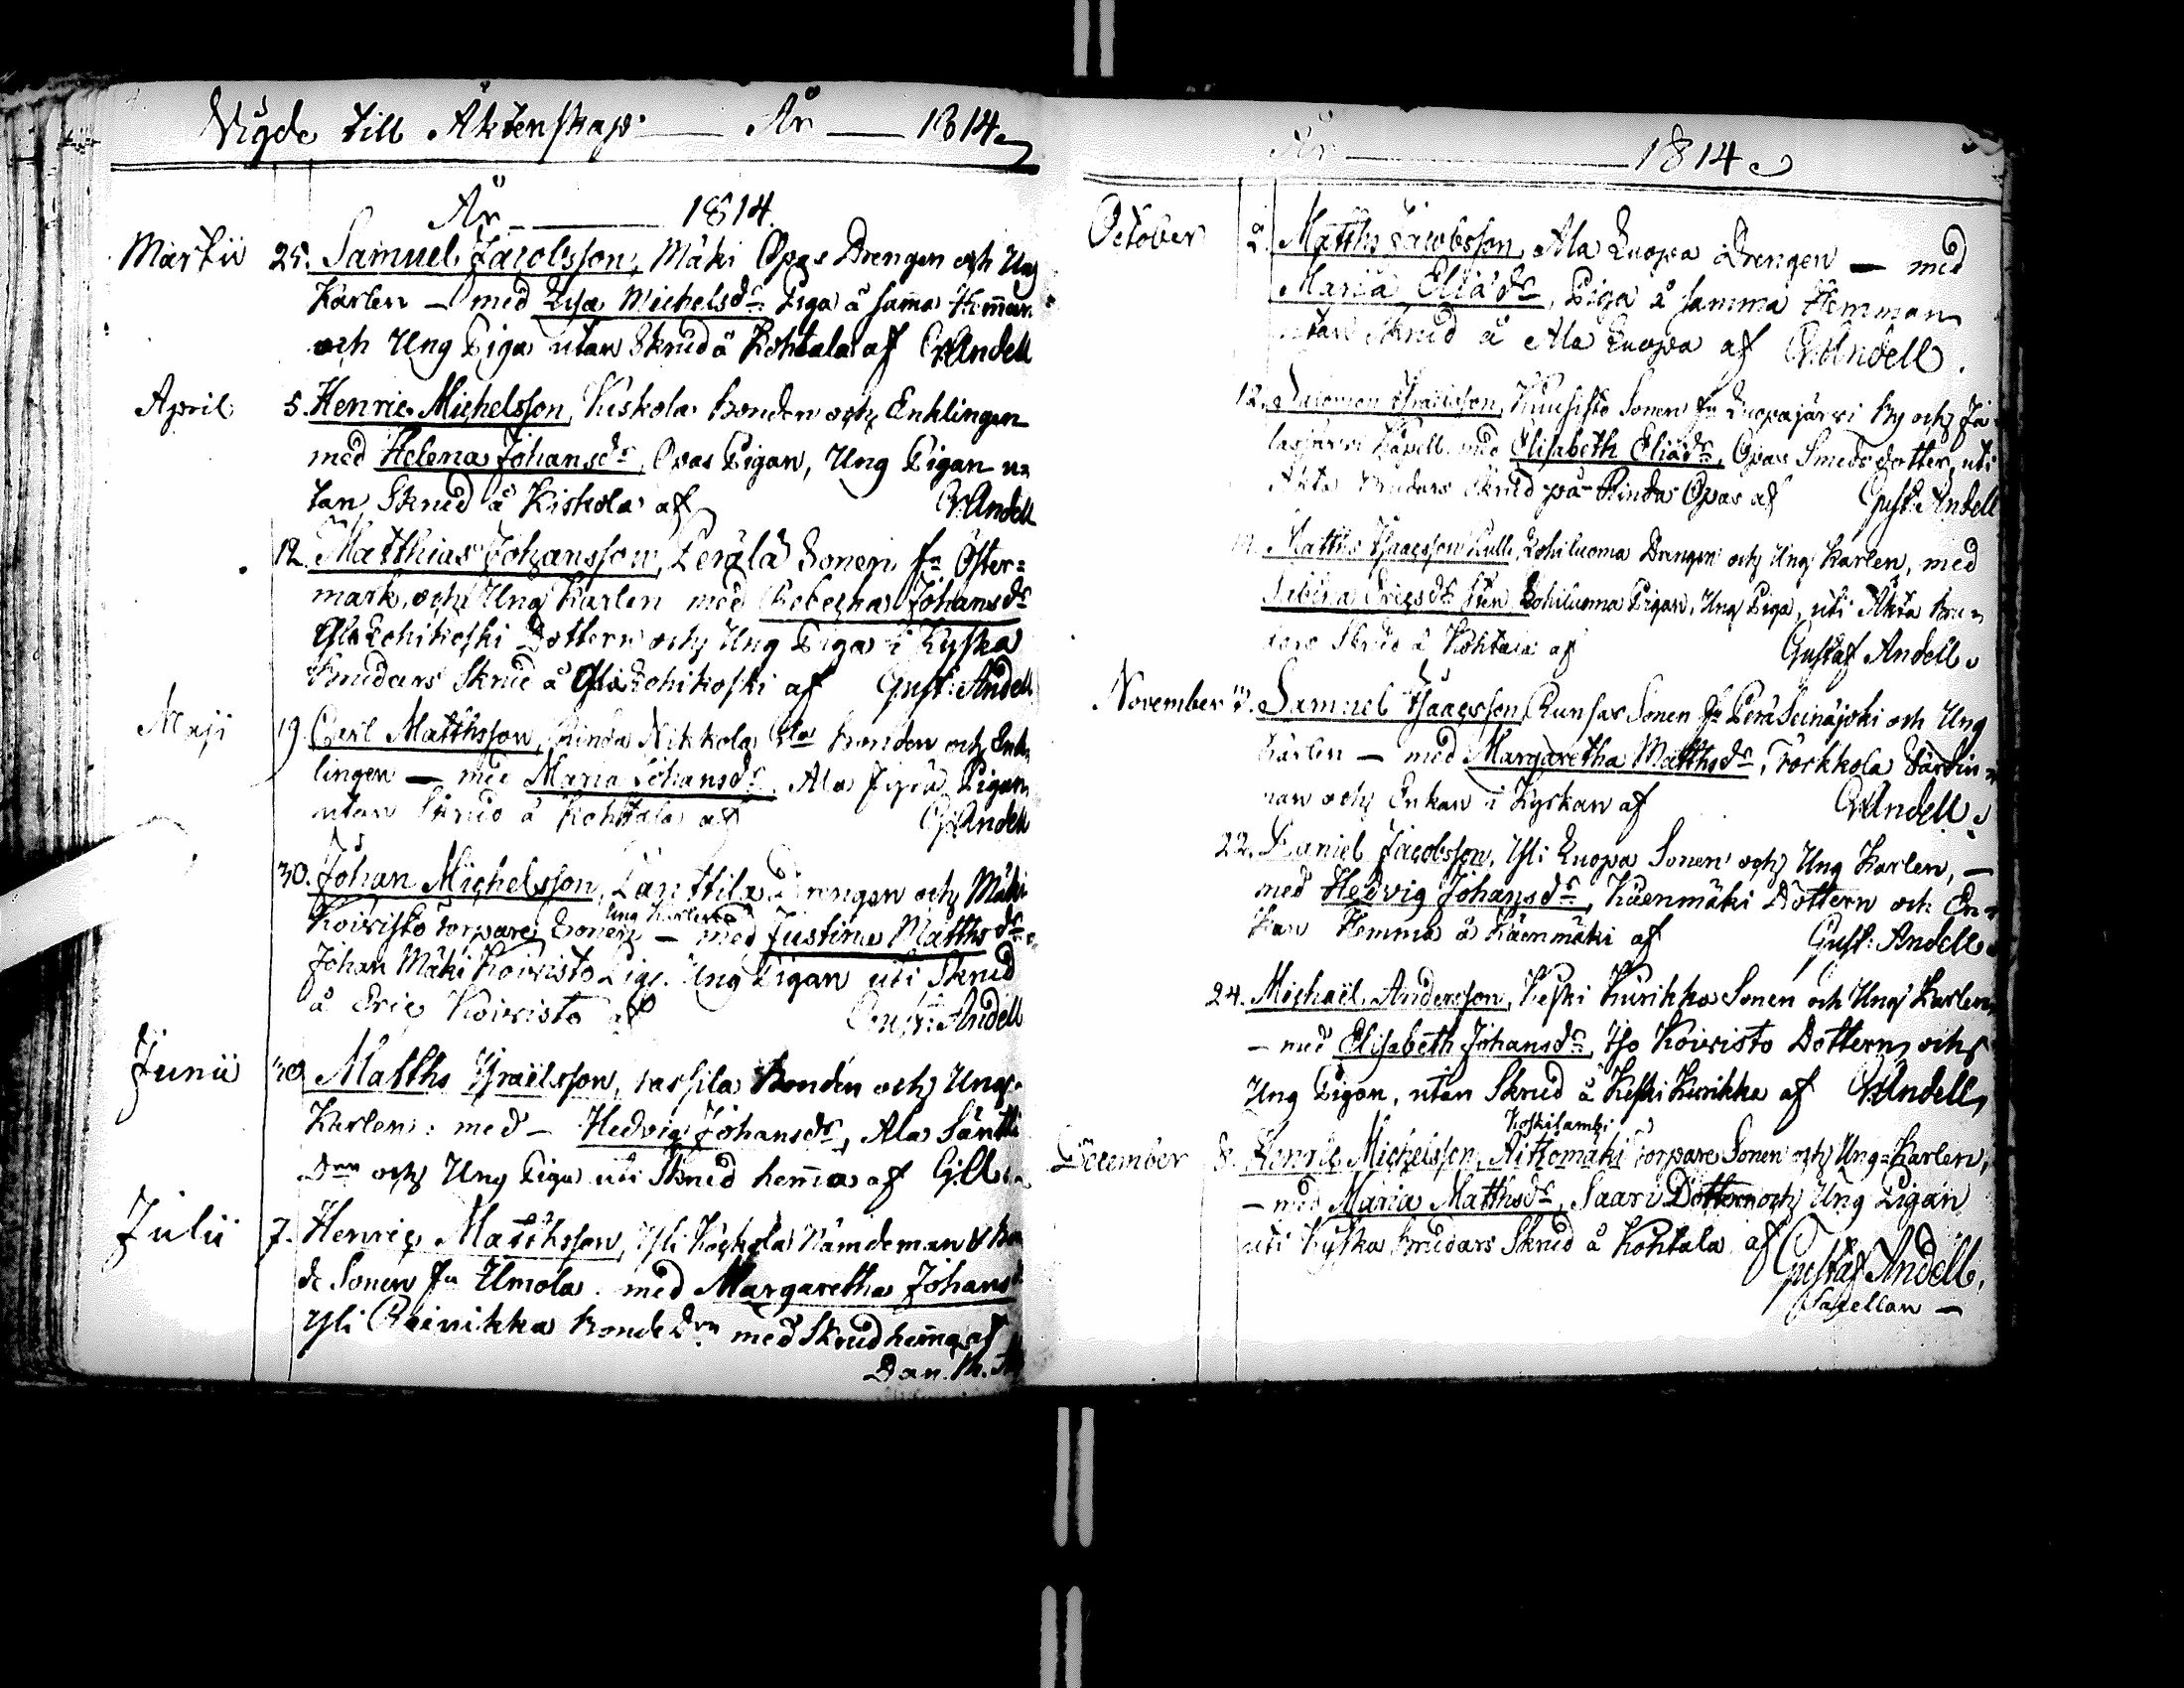 Vigde till Äktenskap — År — 1814
År — 1814
Martii 25. Samuel Jacobsson, Mäki Opas Drengen och Ung
Karlen — med Lisa Michelsdr Piga å samma Hemman
och Ung Piga utan Skrud å Kohtala af G. Andell
April 5. Henric Michelsson, Kiskola bonden och Enklingen
med Helena Johansdr, Opas Pigan, Ung Pigan u=
tan Skrud å Kiskola af G. Andell
12. Matthias Johansson, Perälä Sonen fr Öster=
mark, och Ung Karlen med Rebecka Johansdr
Ylis Lohikoski Dottern och Ung Piga i Kyrka
Brudars Skrud å Lohikoski af Gust: Andell
Maji 19. Carl Matthsson, Rinda Nikkola bonden och Enk
lingen — med Maria Johansdr, Ala Jyrä Pigan
utan Skrud å Kohtala af G. Andell
30. Johan Michelsson, Länttilä Drengen och Mäki
Ung Karlen
Koivisto torpare Sonen — med Justina Matthsdr
Johan Mäki Koivisto Pig. Ung Pigan uti Skrud
å Eric Koivisto af Gust: Andell
Junii 30. Matths Israëlsson, Passila Bonden och Ung
Karlen: med — Hedvig Johansdr, Ala Säntti
Drn och Ung Piga uti Skrud hemma af G. A.
Julii 7. Henric Matthsson, Yli Käckölä Nämdeman & Bon
de Sonen fr Ilmola med Margaretha Johansd
Yli Reinikka bonde Drn med Skrud hemma af
Dan. H.
År — 1814
October 2. Matths Jacobsson, Ala Luopa Drengen — med
Maria Eliædr, Piga å samma Hemman
utan Skrud å Ala Luopa af G. Andell.
12. Salomon Israelsson, Kuusisto Sonen fr Luopajärvi by och Ja
lasjärvi Kapell med Elisabeth Eliædr, Opas Smeds dotter, uti
Äkta Brudars Skrud på Rinda Opas af Gust: Andell
Matths Isaacsson Kulli, Lohiluoma Drengen och Ung Karlen, med
Sabina Ericsdr Lohiluoma Pigan, Ung Piga, uti Äkta bru=
dars Skrud å Kohtala af Gustaf Andell
November Samuel Isaacsson Runsas Sonen fr Peräseinäjoki och Ung
Karlen — med Margaretha Matthsdr, Törkkola Värdin=
nan och Enkan i Kyrkan af G. Andell
22. Daniel Jacobsson, Yli Luopa Sonen och Ung Karlen, —
med Hedvig Johansdr, Käenmäki Dottern och En=
kan Hemma å Käenmäki af Gust: Andell
24. Michaël Andersson, Keski Kurikka Sonen och Ung Karlen
— med Elisabeth Johansdr, Iso Koivisto Dottern och
Ung Pigan, utan Skrud å Keski Kurikka af G. Andell
Koskilambi
December 8. Henric Michelsson, Aitomäki torpare Sonen och Ung=Karlen,
— med Maria Matthsdr, Saari Dottern och Ung Pigan
uti Kyrka brudars Skrud å Kohtala af
Gustaf Andell,
Capellan —